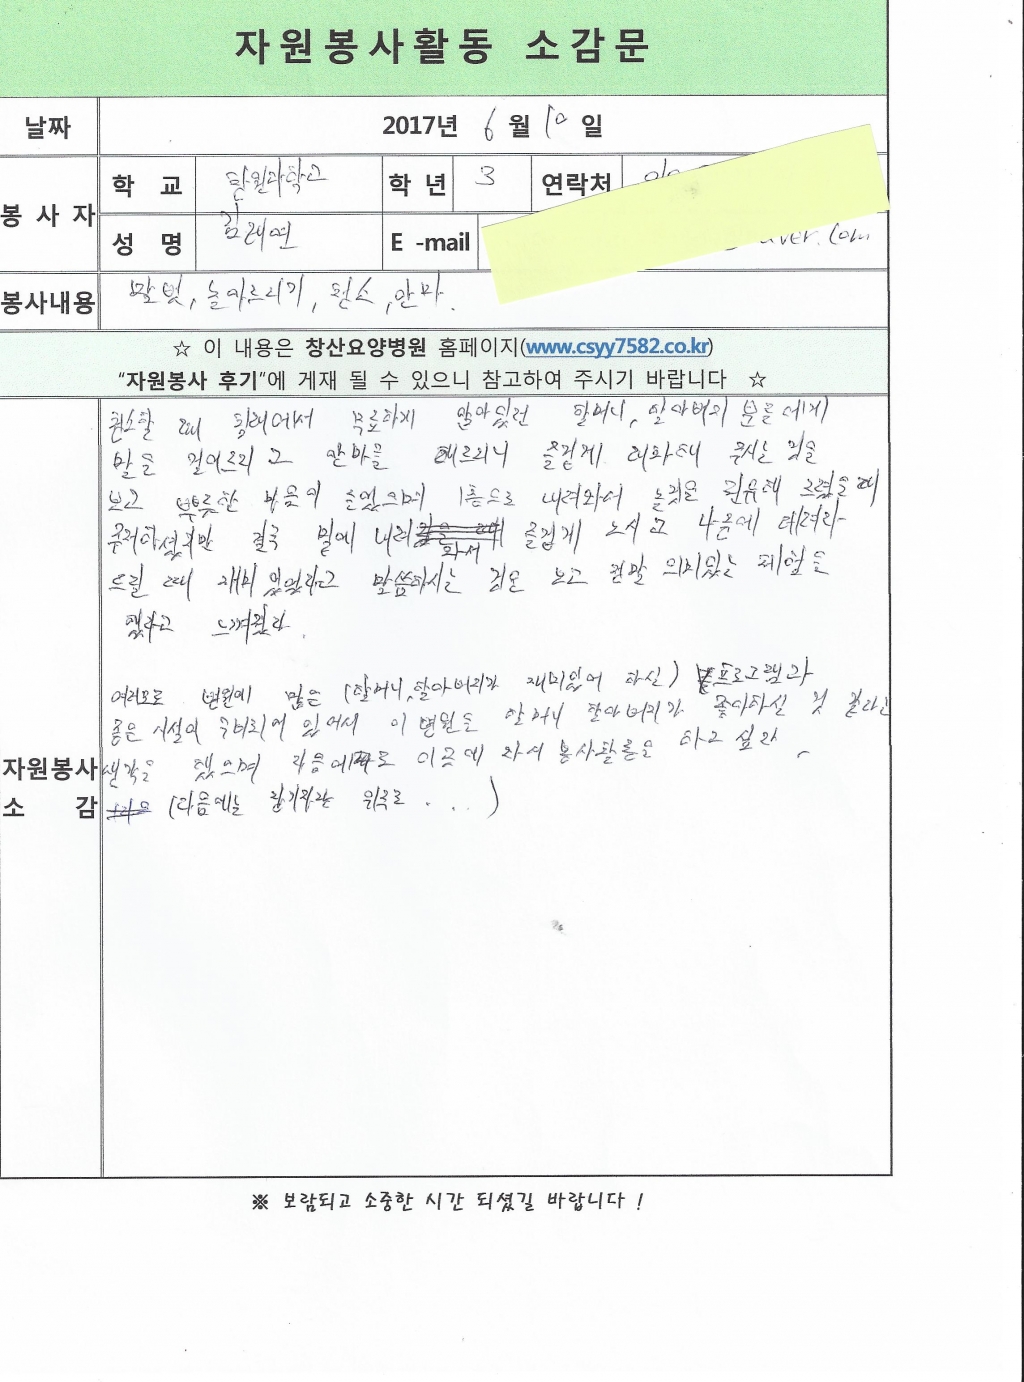 자원봉사활동 소감문
날짜 2017년 6월 10일
봉사자 학교 학년 3 연락처 010
성명 김래연 E-mail naver.com
봉사내용 말벗, 놀아드리기, 청소, 안마.
☆ 이 내용은 창산요양병원 홈페이지(www.csyy7582.co.kr)
"자원봉사 후기"에 게재 될 수 있으니 참고하여 주시기 바랍니다 ☆
청소할 때 침대에서 무료하게 앉아있던 할머니, 할아버지 분들에게
말을 걸어드리고 안마를 해드리니 즐겁게 대화해 주시는 것을
보고 뿌듯한 마음이 들었으며, 1층으로 내려와서 놀것을 권유해 드렸을 때
주저하셨지만 결국 밑에 내려와서 즐겁게 노시고 나중에 데려다
드릴 때 재미있었다고 말씀하시는 것을 보고 정말 의미있는 체험을
했다고 느껴졌다.
여러모로 병원에 많은 (할머니, 할아버지가 재미있어 하신) 프로그램과
좋은 시설이 구비되어 있어서 이 병원을 할머니 할아버지가 좋아하신 것 같다고
생각을 했으며 다음에도 이곳에 와서 봉사활동을 하고 싶다.
(다음에는 위주로 ....)
자원봉사
소감
※ 보람되고 소중한 시간 되셨길 바랍니다 !